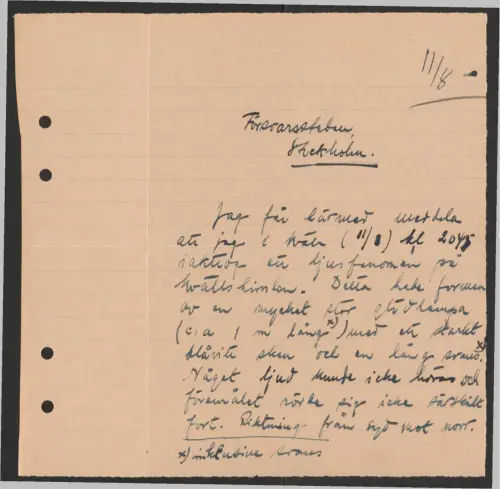 11/8 -
Försvarsstaben,
Stockholm.
Jag får härmed meddela
att jag i kväll (11/8) kl 2045
iakttog ett ljusfenomen på
kvällshimlen. Detta hade formen
av en mycket stor glödlampa
(c:a 1 m lång x)) med ett starkt
blåvitt sken och en lång svans. x)
Något ljud kunde icke höras och
föremålet rörde sig icke särskilt
fort. Riktning från syd mot norr.
x) inklusive svans